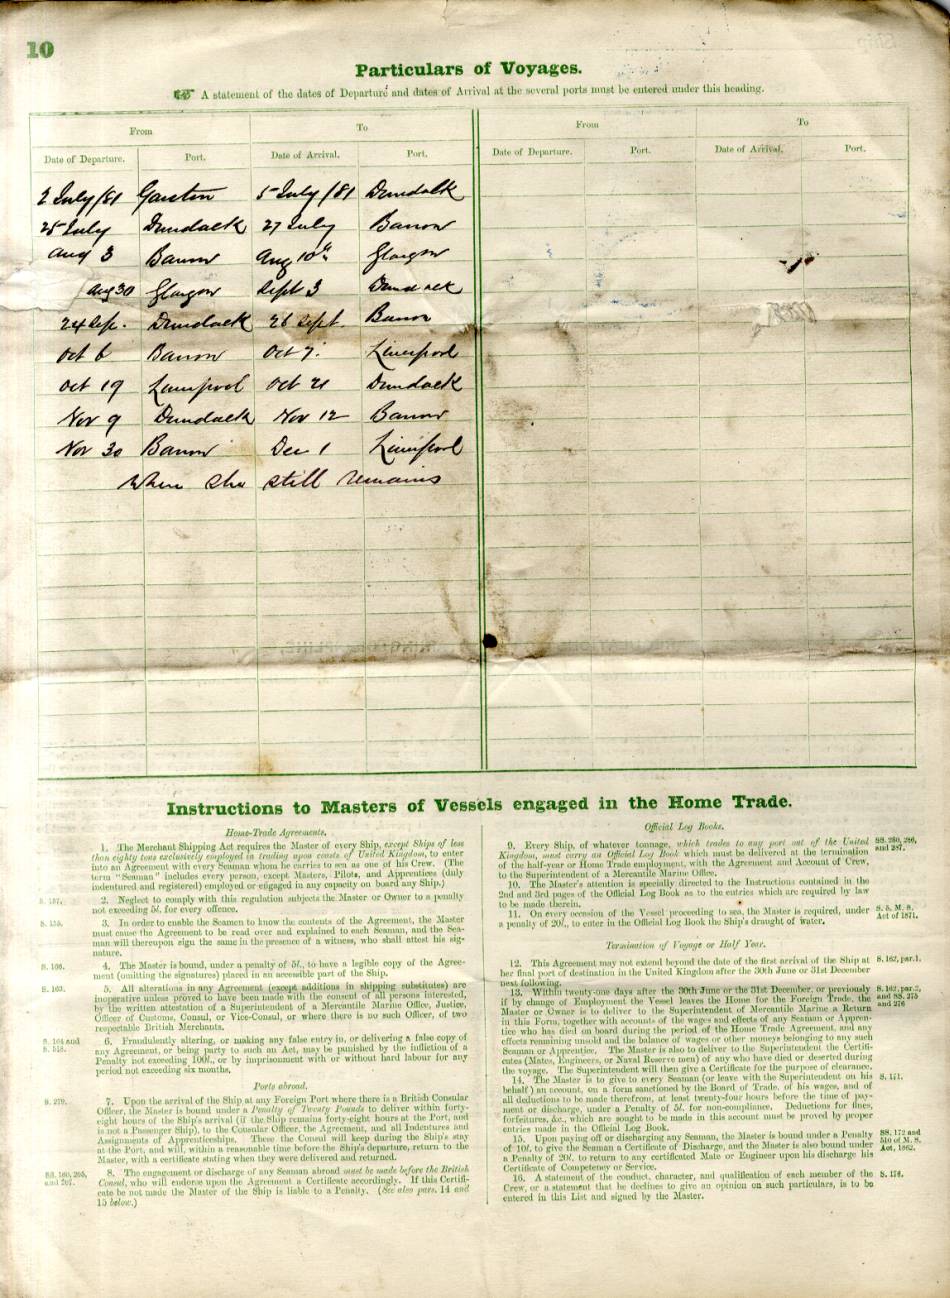 10
Particulars of Voyages.
A statement of the dates of Departure and dates of Arrival at the several ports must be entered under this heading.
From To From To
Date of Departure. Port. Date of Arrival. Port. Date of Departure. Port. Date of Arrival. Port.
2 July/81 Garston 5 July/81 Dundalk
25 July Dundalk 27 July Barrow
Aug 3 Barrow Aug 10th Glasgow
Aug 30 Glasgow Sept 3 Dundalk
24 Sep. Dundalk 26 Sept. Barrow
Oct 6 Barrow Oct 7. Liverpool
Oct 19 Liverpool Oct 21 Dundalk
Nov 9 Dundalk Nov 12 Barrow
Nov 30 Barrow Dec 1 Liverpool
Where she still remains
Instructions to Masters of Vessels engaged in the Home Trade.
Home-Trade Agreements.
1. The Merchant Shipping Act requires the Master of every Ship, except Ships of less
than eighty tons exclusively employed in trading upon coasts of United Kingdom, to enter
into an Agreement with every Seaman whom he carries to sea as one of his Crew. (The
term "Seaman" includes every person, except Masters, Pilots, and Apprentices (duly
indentured and registered) employed or engaged in any capacity on board any Ship.)
S. 157. 2. Neglect to comply with this regulation subjects the Master or Owner to a penalty
not exceeding 5l. for every offence.
S. 155. 3. In order to enable the Seamen to know the contents of the Agreement, the Master
must cause the Agreement to be read over and explained to each Seaman, and the Sea-
man will thereupon sign the same in the presence of a witness, who shall attest his sig-
nature.
S. 166. 4. The Master is bound, under a penalty of 5l., to have a legible copy of the Agree-
ment (omitting the signatures) placed in an accessible part of the Ship.
S. 163. 5. All alterations in any Agreement (except additions in shipping substitutes) are
inoperative unless proved to have been made with the consent of all persons interested,
by the written attestation of a Superintendent of a Mercantile Marine Office, Justice,
Officer of Customs, Consul, or Vice-Consul, or where there is no such Officer, of two
respectable British Merchants.
S. 164 and S. 518. 6. Fraudulently altering, or making any false entry in, or delivering a false copy of
any Agreement, or being party to such an Act, may be punished by the infliction of a
Penalty not exceeding 100l., or by imprisonment with or without hard labour for any
period not exceeding six months.
Ports abroad.
S. 279. 7. Upon the arrival of the Ship at any Foreign Port where there is a British Consular
Officer, the Master is bound under a Penalty of Twenty Pounds to deliver within forty-
eight hours of the Ship's arrival (if the Ship remains forty-eight hours at the Port, and
is not a Passenger Ship), to the Consular Officer, the Agreement, and all Indentures and
Assignments of Apprenticeships. These the Consul will keep during the Ship's stay
at the Port, and will, within a reasonable time before the Ship's departure, return to the
Master, with a certificate stating when they were delivered and returned.
SS. 160, 205, and 207. 8. The engagement or discharge of any Seaman abroad must be made before the British
Consul, who will endorse upon the Agreement a Certificate accordingly. If this Certifi-
cate be not made the Master of the Ship is liable to a Penalty. (See also pars. 14 and
15 below.)
Official Log Books.
9. Every Ship, of whatever tonnage, which trades to any port out of the United SS. 280, 286, and 287.
Kingdom, must carry an Official Log Book which must be delivered at the termination
of the half-year or Home Trade employment, with the Agreement and Account of Crew,
to the Superintendent of a Mercantile Marine Office.
10. The Master's attention is specially directed to the Instructions contained in the
2nd and 3rd pages of the Official Log Book as to the entries which are required by law
to be made therein.
11. On every occasion of the Vessel proceeding to sea, the Master is required, under S. 5. M. S. Act of 1871.
a penalty of 20l., to enter in the Official Log Book the Ship's draught of water.
Termination of Voyage or Half Year.
12. This Agreement may not extend beyond the date of the first arrival of the Ship at S. 162, par.1.
her final port of destination in the United Kingdom after the 30th June or 31st December
next following.
13. Within twenty-one days after the 30th June or the 31st December, or previously S. 162, par.2, and SS. 275 and 276
if by change of Employment the Vessel leaves the Home for the Foreign Trade, the
Master or Owner is to deliver to the Superintendent of Mercantile Marine a Return
in this Form, together with accounts of the wages and effects of any Seaman or Appren-
tice who has died on board during the period of the Home Trade Agreement, and any
effects remaining unsold and the balance of wages or other moneys belonging to any such
Seaman or Apprentice. The Master is also to deliver to the Superintendent the Certifi-
cates (Mates, Engineers, or Naval Reserve men) of any who have died or deserted during
the voyage. The Superintendent will then give a Certificate for the purpose of clearance.
14. The Master is to give to every Seaman (or leave with the Superintendent on his S. 171.
behalf) an account, on a form sanctioned by the Board of Trade, of his wages, and of
all deductions to be made therefrom, at least twenty-four hours before the time of pay-
ment or discharge, under a Penalty of 5l. for non-compliance. Deductions for fines,
forfeitures, &c., which are sought to be made in this account must be proved by proper
entries made in the Official Log Book.
15. Upon paying off or discharging any Seaman, the Master is bound under a Penalty SS. 172 and 510 of M. S. Act, 1862.
of 10l. to give the Seaman a Certificate of Discharge, and the Master is also bound under
a Penalty of 20l. to return to any certificated Mate or Engineer upon his discharge his
Certificate of Competency or Service.
16. A statement of the conduct, character, and qualification of each member of the S. 176.
Crew, or a statement that he declines to give an opinion on such particulars, is to be
entered in this List and signed by the Master.